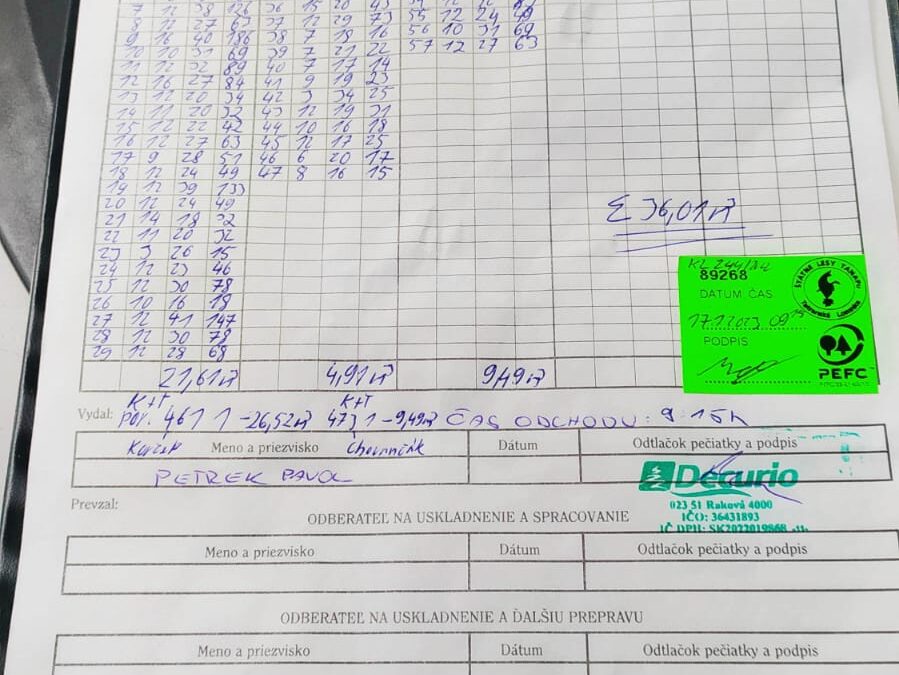 7 12 38 126 36 15 20 43
8 12 27 63 37 12 29 73 55 12 24 49
9 16 40 186 38 7 18 16 56 10 31 69
10 10 31 69 39 7 21 22 57 12 27 63
11 12 32 89 40 7 17 14
12 16 27 84 41 9 19 23
13 12 20 34 42 3 34 25
14 11 20 32 43 12 19 31
15 12 22 42 44 10 16 18
16 12 27 63 45 12 17 25
17 9 28 51 46 6 20 17
18 12 24 49 47 8 16 15
19 12 39 133
20 12 24 49
21 14 18 32
22 11 20 32
23 3 26 15
24 12 23 46
25 12 30 78
26 10 16 18
27 12 41 147
28 12 30 78
29 12 28 68
Σ 36,01 m³
89268
ŠTÁTNE LESY TANAPU
Tatranská Lomnica
DATUM ČAS
17.1.2023 09 15
PODPIS
PEFC
21,61 m³ 4,91 m³ 9,49 m³
K+T K+T
Vydal: por. 461 1 - 26,52 m³ 473 1 - 9,49 m³ ČAS ODCHODU: 9:15h
Meno a priezvisko Dátum Odtlačok pečiatky a podpis
PETREK PAVOL
Decurio
023 51 Raková 4000
IČO: 36431893
IČ DPH: SK2022019868
Prevzal:
ODBERATEĽ NA USKLADNENIE A SPRACOVANIE
Meno a priezvisko Dátum Odtlačok pečiatky a podpis
ODBERATEĽ NA USKLADNENIE A ĎALŠIU PREPRAVU
Meno a priezvisko Dátum Odtlačok pečiatky a podpis